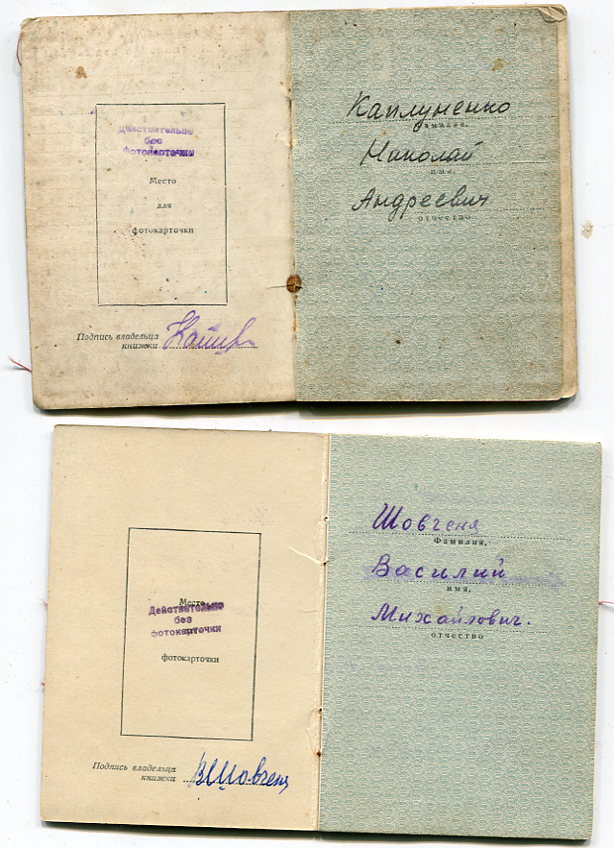 Действительно
без
фотокарточки
Место
для
фотокарточки
Подпись владельца
книжки
Каплуненко
Фамилия,
Николай
имя,
Андреевич
отчество
Место
Действительно
без
фотокарточки
фотокарточки
Подпись владельца
книжки
ВШовгеня
Шовгеня
Фамилия,
Василий
имя,
Михайлович.
отчество